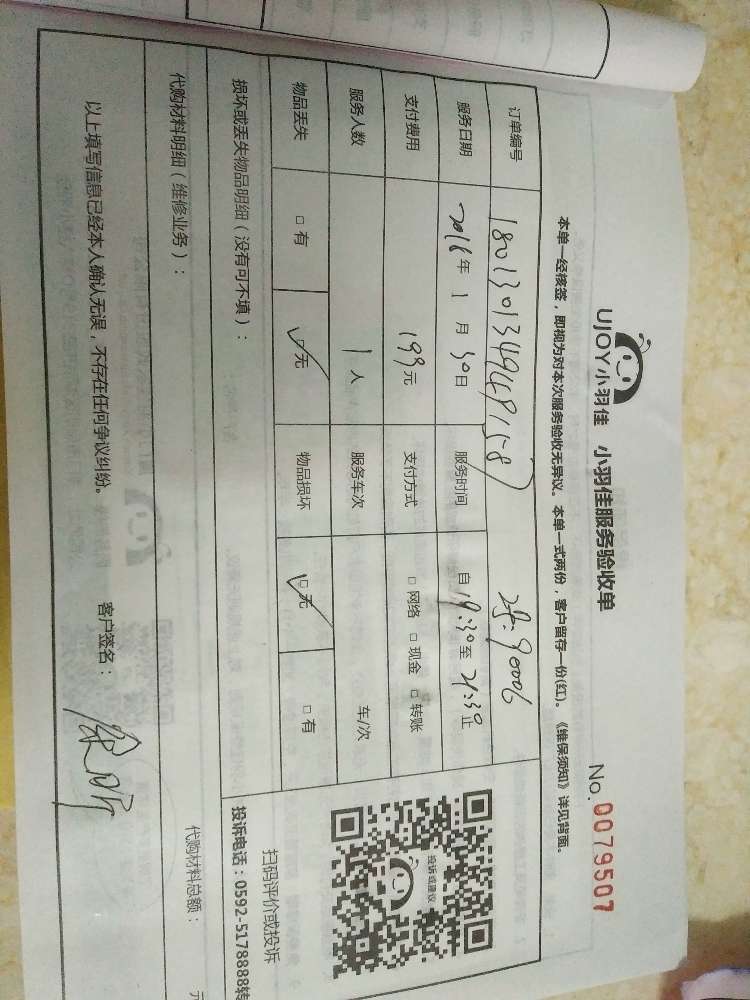 UJOY小羽佳 小羽佳服务验收单
No.0079507
本单一经核签，即视为对本次服务验收无异议。本单一式两份，客户留存一份(红)。《维保须知》详见背面。
订单编号
服务日期 2018年1月30日 服务时间 自19:30至21:30止
支付费用 199元 支付方式 □网络 □现金 □转账
服务人数 1人 服务车次 车/次
物品丢失 □有 □无 物品损坏 □无 □有
损坏或丢失物品明细（没有可不填）：
代购材料明细（维修业务）：
代购材料总额： 元
以上填写信息已经本人确认无误，不存在任何争议纠纷。 客户签名：
投诉或建议
扫码评价或投诉
投诉电话：0592-5178888转